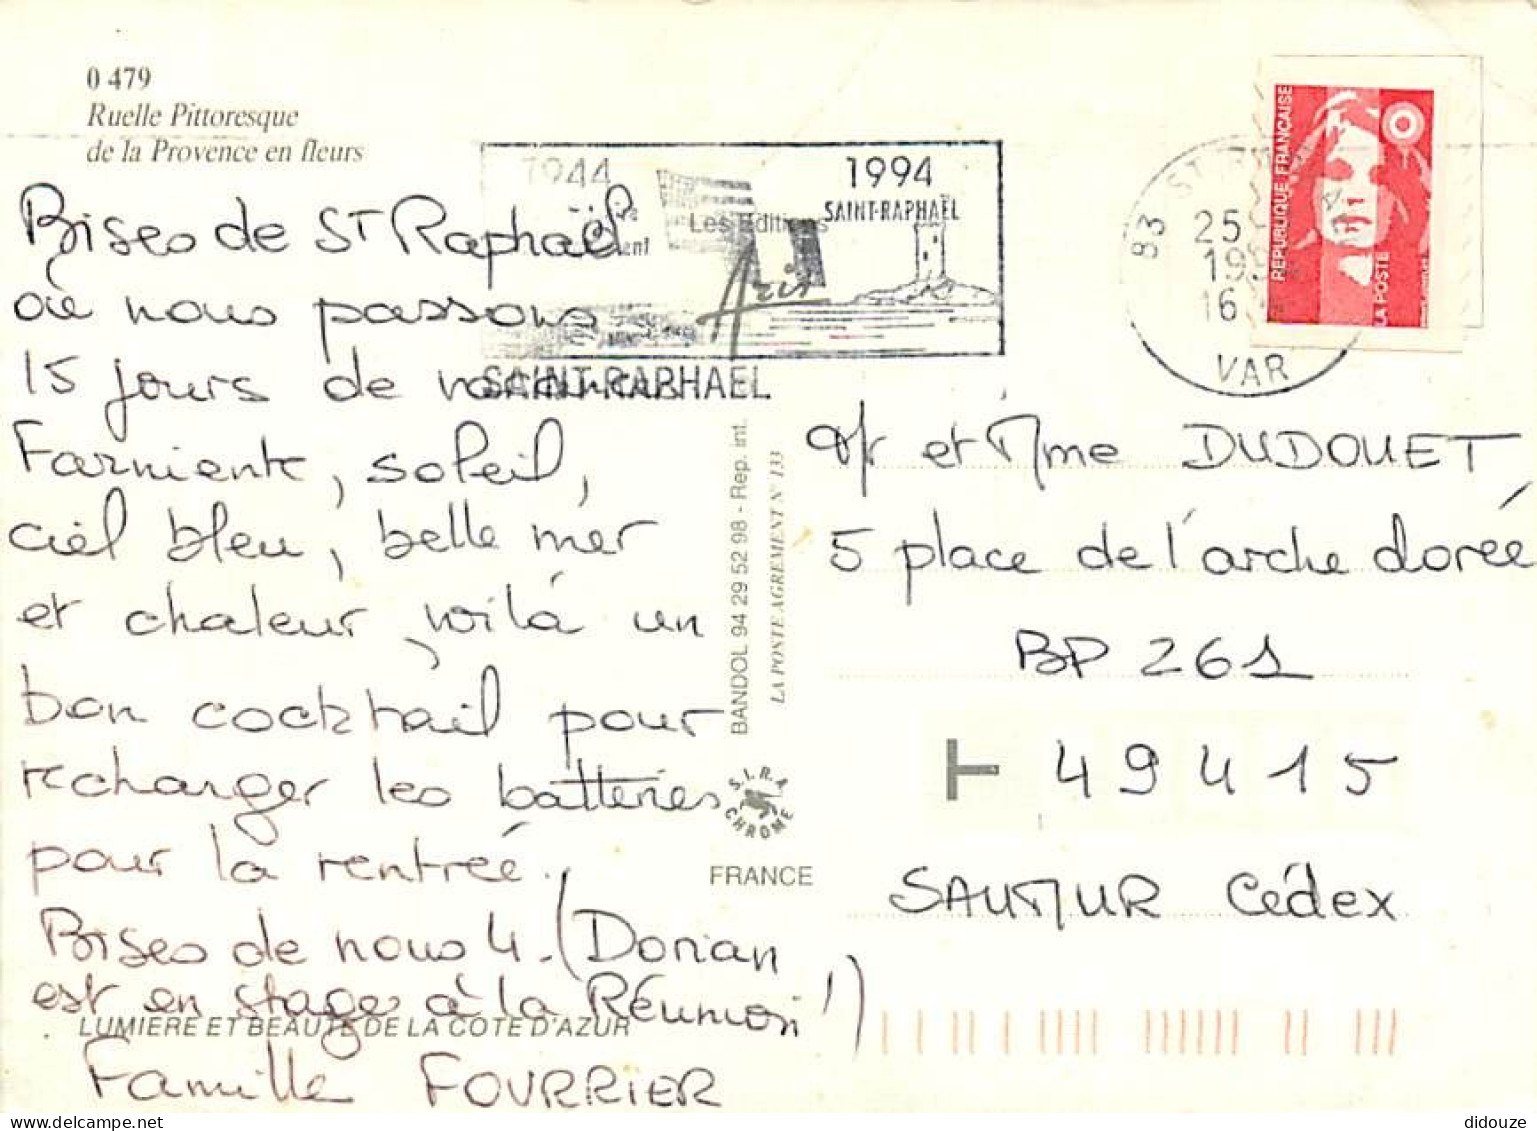 0 479
Ruelle Pittoresque
de la Provence en fleurs
1944 1994
SAINT-RAPHAËL
Les Editions
Aris
SAINT-RAPHAEL
83 ST
25
16
VAR
REPUBLIQUE FRANÇAISE
LA POSTE
Bises de ST Raphaël
où nous passons
15 jours de vacances
Farniente, soleil,
ciel bleu, belle mer
et chaleur, voilà un
bon cocktail pour
recharger les batteries
pour la rentrée.
Bises de nous 4. (Dorian
est en stage à la Réunion !)
Famille FOURRIER
LUMIERE ET BEAUTE DE LA COTE D'AZUR
BANDOL 94 29 52 98 - Rep. int.
LA POSTE AGREMENT N° 133
S.I.R.A
CHROME
FRANCE
Mr et Mme DUDOUET
5 place de l'arche dorée
BP 261
49415
SAUMUR Cédex
didouze